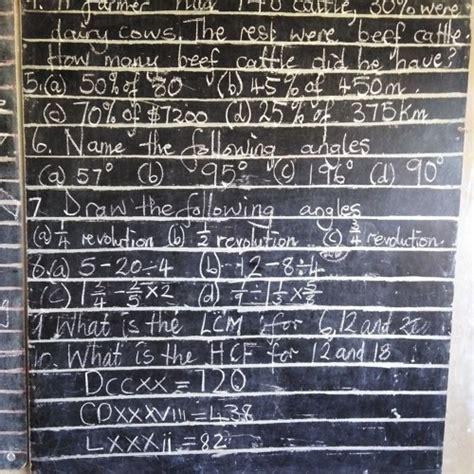 4. A farmer had 140 cattle, 30% were
dairy cows. The rest were beef cattle.
How many beef cattle did he have?
5.(a) 50% of 80 (b) 45% of 450m.
(c) 70% of $7200 (d) 25% of 375km
6. Name the following angles
(a) 57° (b) 95° (c) 196° (d) 90°
7 Draw the following angles
(a) 1/4 revolution (b) 1/2 revolution (c) 3/4 revolution.
8.(a) 5-20÷4 (b) 12-8÷4
(c) 1 3/4 - 2/5 x2 (d) 1/9 ÷ 1 1/3 x 5/8
9 What is the LCM for 6,12 and
10. What is the HCF for 12 and 18
Dccxx = 720
CDXXXViii = 438
LXXXii = 82